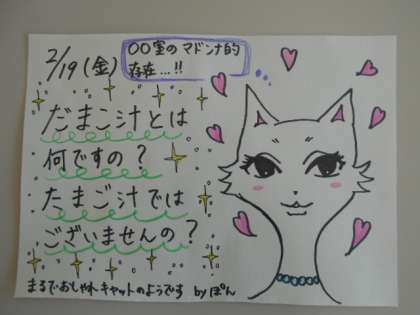 2/19(金)
〇〇室のマドンナ的
存在…!!
だまご汁とは
何ですの?
たまご汁では
ございませんの?
まるでおしゃれキャットのようです byぽん